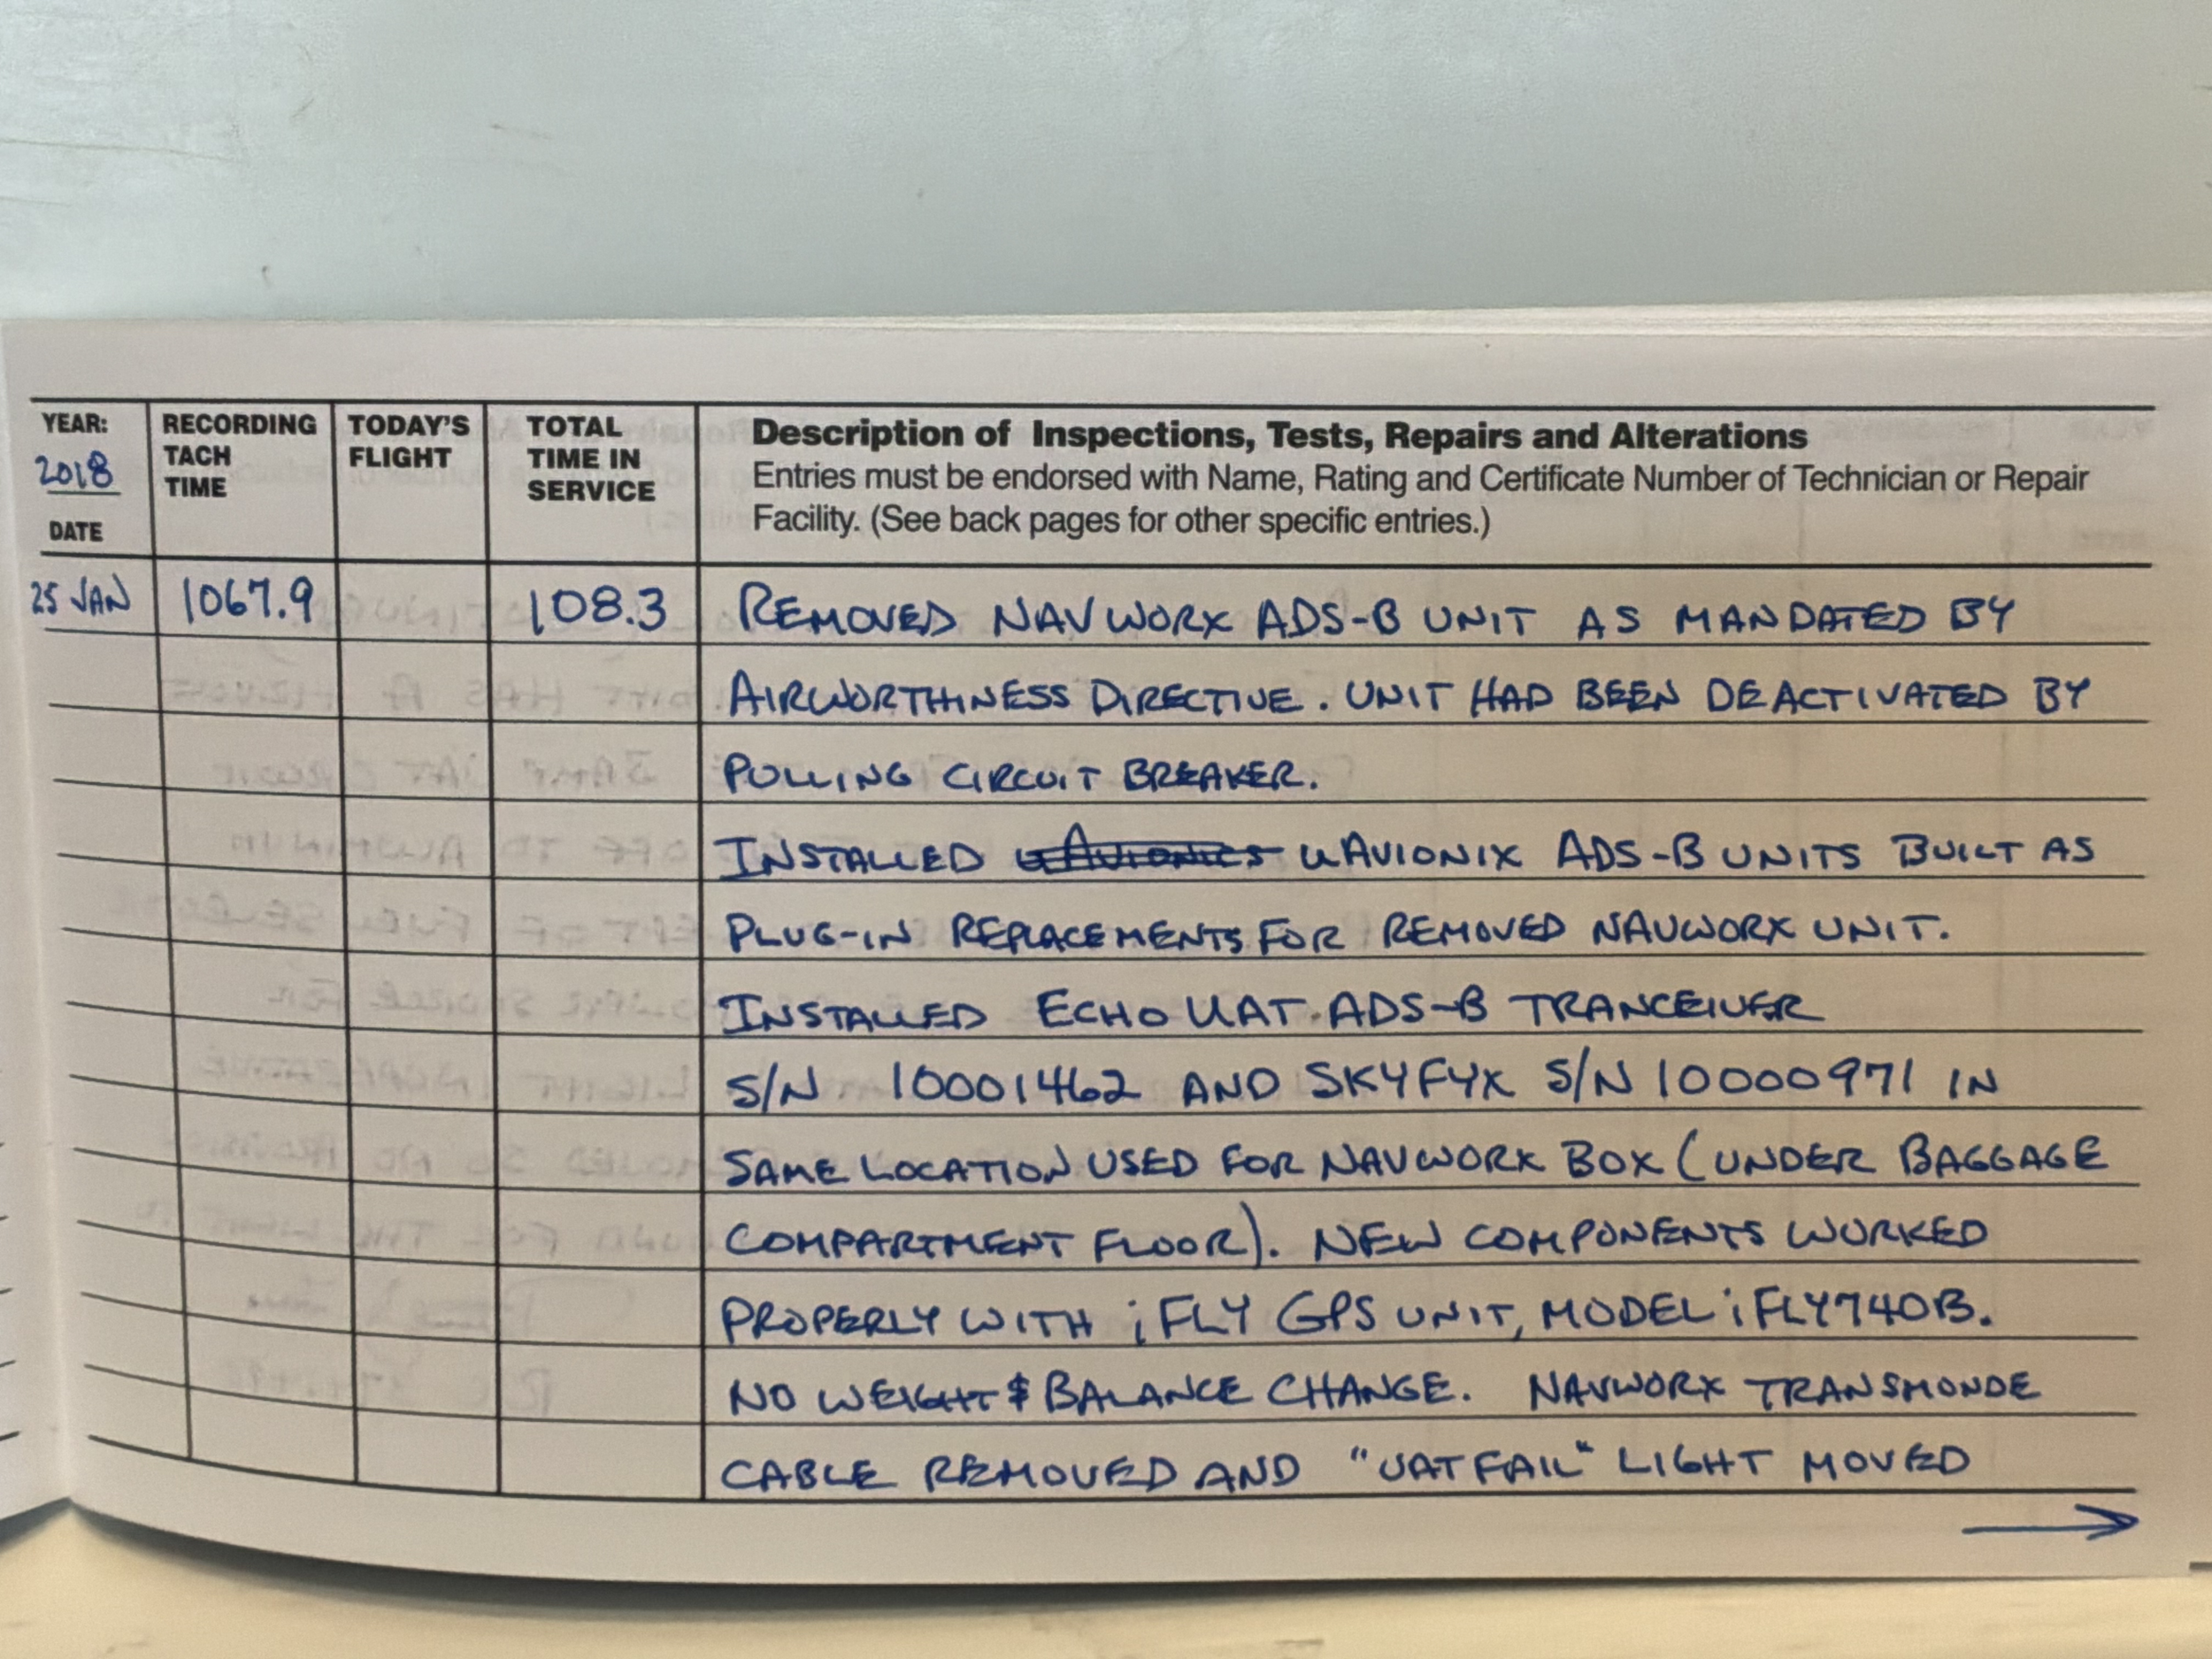 YEAR: 2018 DATE
RECORDING TACH TIME
TODAY'S FLIGHT
TOTAL TIME IN SERVICE
Description of Inspections, Tests, Repairs and Alterations
Entries must be endorsed with Name, Rating and Certificate Number of Technician or Repair
Facility. (See back pages for other specific entries.)
25 JAN 1067.9 108.3 REMOVED NAVWORX ADS-B UNIT AS MANDATED BY
AIRWORTHINESS DIRECTIVE. UNIT HAD BEEN DEACTIVATED BY
PULLING CIRCUIT BREAKER.
INSTALLED uAVIONIX ADS-B UNITS BUILT AS
PLUG-IN REPLACEMENTS FOR REMOVED NAVWORX UNIT.
INSTALLED ECHO UAT ADS-B TRANCEIVER
S/N 10001462 AND SKYFYX S/N 10000971 IN
SAME LOCATION USED FOR NAVWORX BOX (UNDER BAGGAGE
COMPARTMENT FLOOR). NEW COMPONENTS WORKED
PROPERLY WITH iFLY GPS UNIT, MODEL iFLY740B.
NO WEIGHT & BALANCE CHANGE. NAVWORX TRANSMONDE
CABLE REMOVED AND "UAT FAIL" LIGHT MOVED
→